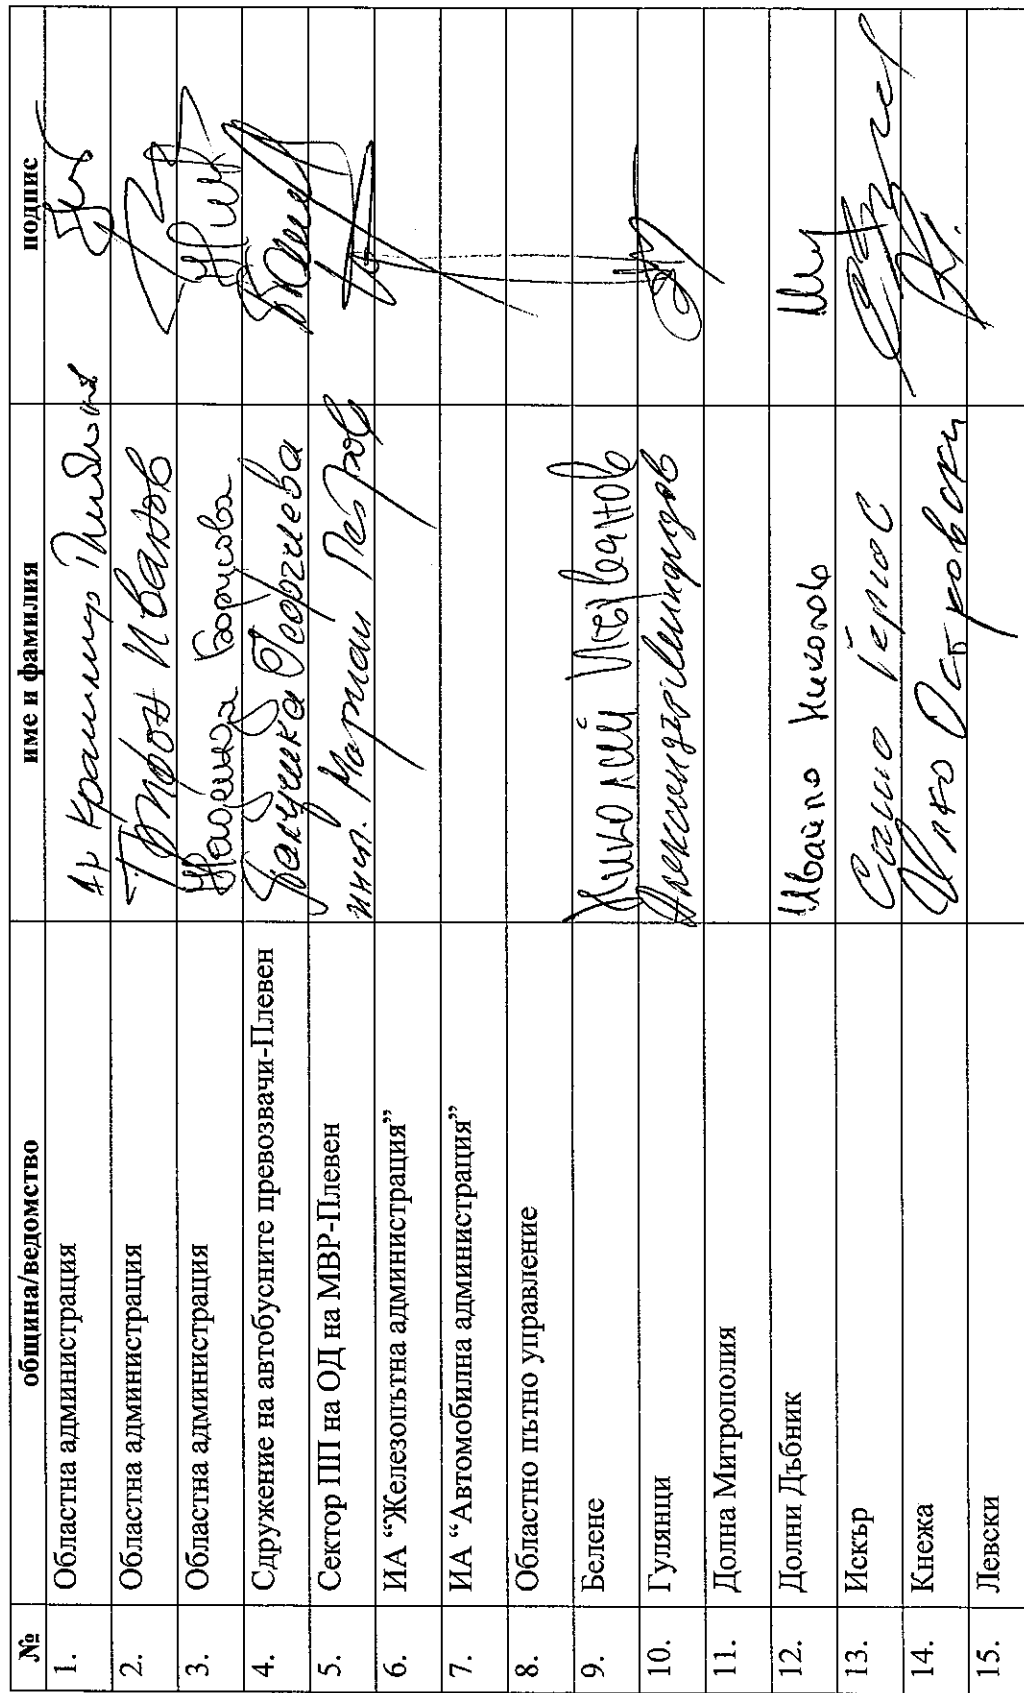 № община/ведомство име и фамилия подпис
1. Областна администрация Др Красимир
2. Областна администрация Трифон Иванов
3. Областна администрация Надежда Борисова
4. Сдружение на автобусните превозвачи-Плевен Георгиева
5. Сектор ПП на ОД на МВР-Плевен инж. Мариан Петров
6. ИА “Железопътна администрация”
7. ИА “Автомобилна администрация”
8. Областно пътно управление
9. Белене Николай
10. Гулянци Александър
11. Долна Митрополия
12. Долни Дъбник Ивайло Николов
13. Искър
14. Кнежа Островски
15. Левски